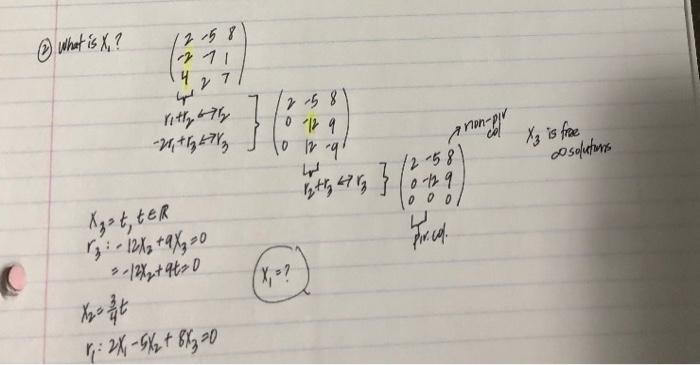 ② What is X₁?
( 2 -5 8 )
( -2 -7 1 )
( 4 2 7 )
r₁+r₂ ↔ r₂
-2r₁+r₃ ↔ r₃
( 2 -5 8 )
( 0 -12 9 )
( 0 12 -9 )
r₂+r₃ ↔ r₃
( 2 -5 8 )
( 0 -12 9 )
( 0 0 0 )
non-piv
col
piv. col.
X₃ is free
∞ solutions
X₃ = t, t ∈ ℝ
r₃: -12X₂ + 9X₃ = 0
= -12X₂ + 9t = 0
X₂ = 3/4 t
r₁: 2X₁ - 5X₂ + 8X₃ = 0
X₁ = ?